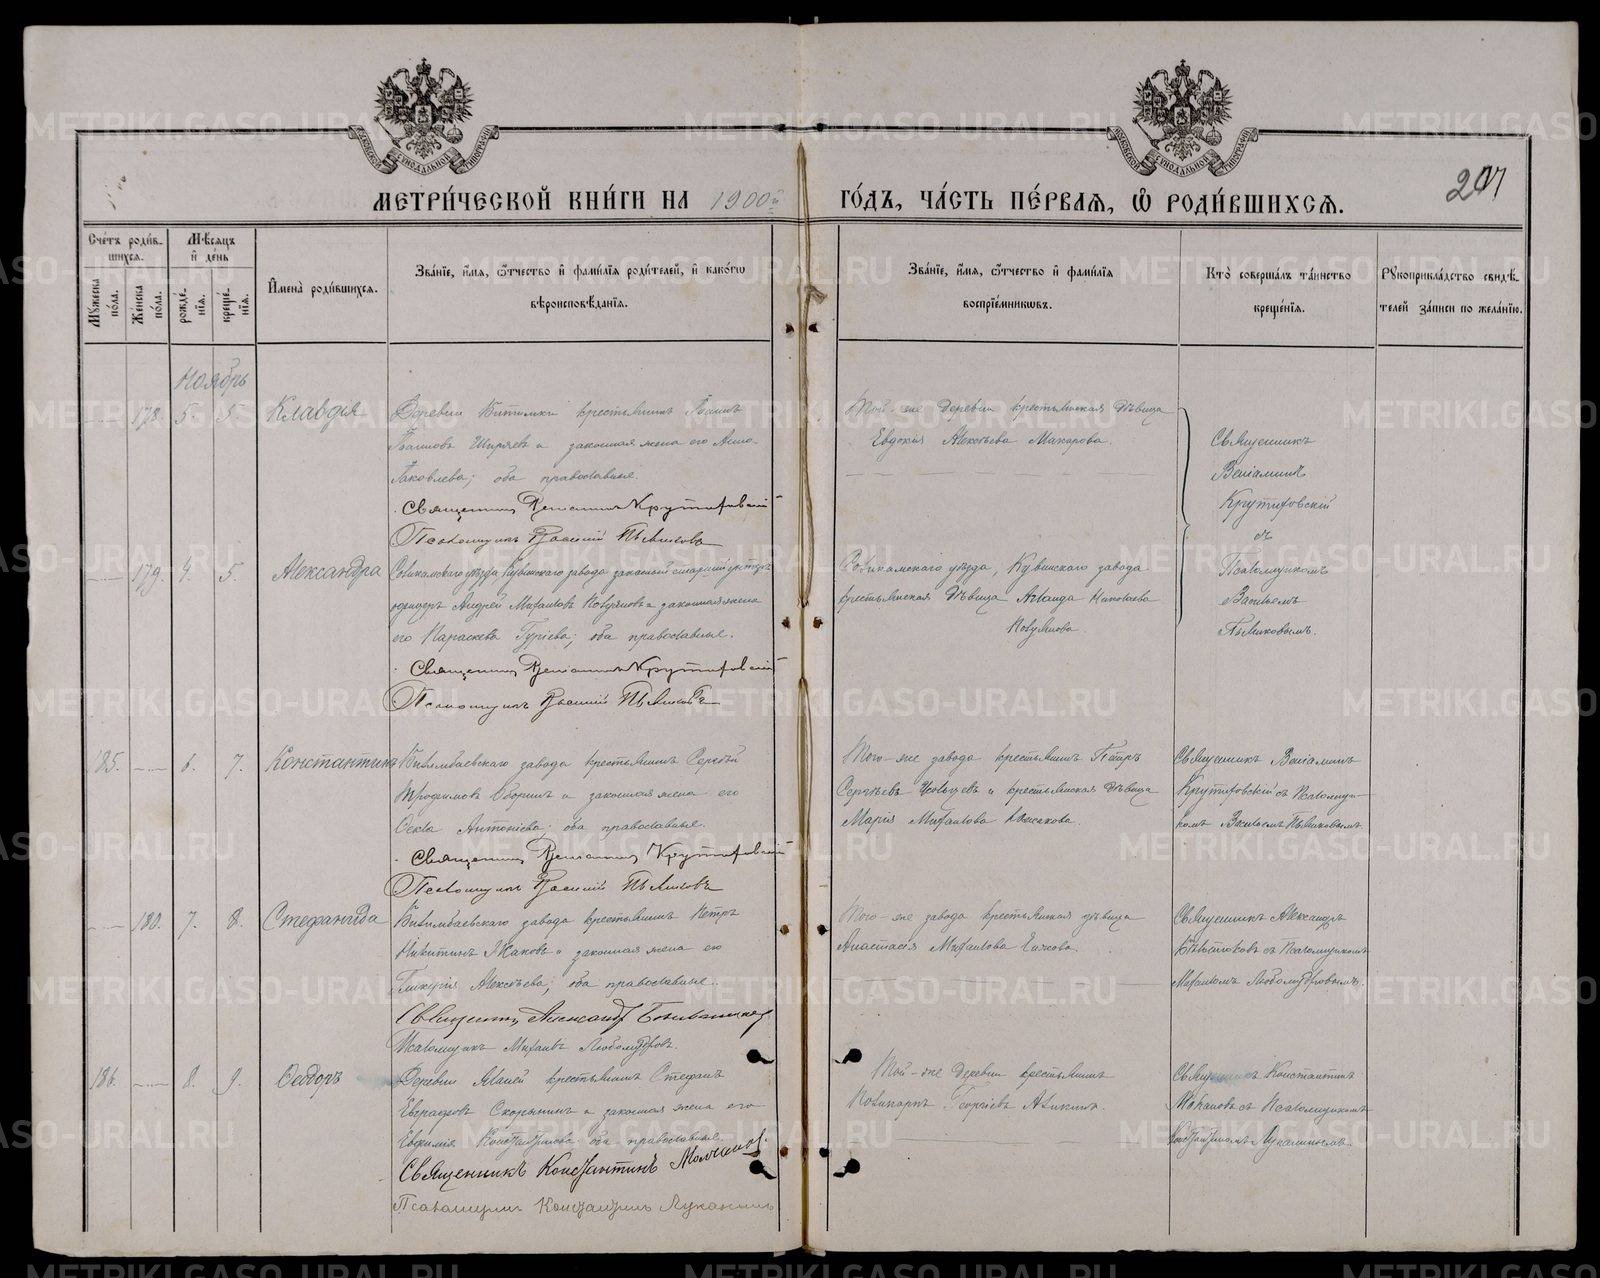 МЕТРИ́ЧЕСКОЙ КНИ́ГИ НА 1900й ГО́ДЪ, ЧА́СТЬ ПЕ́РВАЯ, Ѡ РОДИ́ВШИХСЯ.
Сче́тъ роди́в-
шихся.
Мѣ́сяцъ
и де́нь
Мꙋ́жеска
по́ла.
Же́нска
по́ла.
рожде́-
нїя.
креще́-
нїя.
Имена̀ роди́вшихся.
Зва́нїе, и́мя, ѻ́тчество и фами́лїя роди́телей, и како́гѡ
вѣроисповѣ́данїя.
Зва́нїе, и́мя, ѻ́тчество и фами́лїя
воспрїе́мникѡвъ.
Кто̀ соверша́лъ та́инство
креще́нїя.
Рꙋкоприкла́дство свидѣ́-
телей за́писи по жела́нїю.
Ноябрь
178. 5. 5. Клавдія
Деревни Битимки крестьянинъ Іоаннъ
Іоанновъ Ширяевъ и законная жена его Анна
Іаковлева; оба православные.
Священникъ Веніаминъ Крутиховскій
Псаломщикъ Василій Пьянковъ
Той-же деревни крестьянская дѣвица
Евдокія Алексѣева Макарова.
Священникъ
Веніаминъ
Крутиховскій
съ
Псаломщикомъ
Василіемъ
Пьянковымъ.
179. 4. 5. Александра
Соликамскаго уѣзда, Кувинскаго завода запасный старшій унтеръ
офицеръ Андрей Михаиловъ и законная жена
его Параскева Гуріева; оба православные.
Священникъ Веніаминъ Крутиховскій
Псаломщикъ Василій Пьянковъ
Соликамскаго уѣзда, Кувинскаго завода
крестьянская дѣвица
185. 6. 7. Константинъ
Билимбаевскаго завода крестьянинъ Сергѣй
Трофимовъ и законная жена его
Ѳекла Антоніева; оба православные.
Священникъ Веніаминъ Крутиховскій
Псаломщикъ Василій Пьянковъ
Того-же завода крестьянинъ Петръ
Сергѣевъ и крестьянская дѣвица
Марія Михаилова
Священникъ Веніаминъ
Крутиховскій съ Псаломщи-
комъ Василіемъ Пьянковымъ.
180. 7. 8. Стефанида
Билимбаевскаго завода крестьянинъ Петръ
Никитинъ и законная жена его
Гликерія Алексѣева; оба православные.
Священникъ Александръ
Псаломщикъ Михаилъ Любомудровъ.
Того-же завода крестьянская дѣвица
Анастасія Михаилова
Священникъ Александръ
съ Псаломщикомъ
Михаиломъ Любомудровымъ.
186. 8. 9. Ѳеодоръ
Деревни крестьянинъ Стефанъ
Евграфовъ Скорынинъ и законная жена его
Евфимія Константинова; оба православные.
Священникъ Константинъ
Псаломщикъ Константинъ Луканинъ
Той-же деревни крестьянинъ
Поликарпъ Георгіевъ
Священникъ Константинъ
съ Псаломщикомъ
Константиномъ Луканинымъ.
METRIKI.GASO-URAL.RU